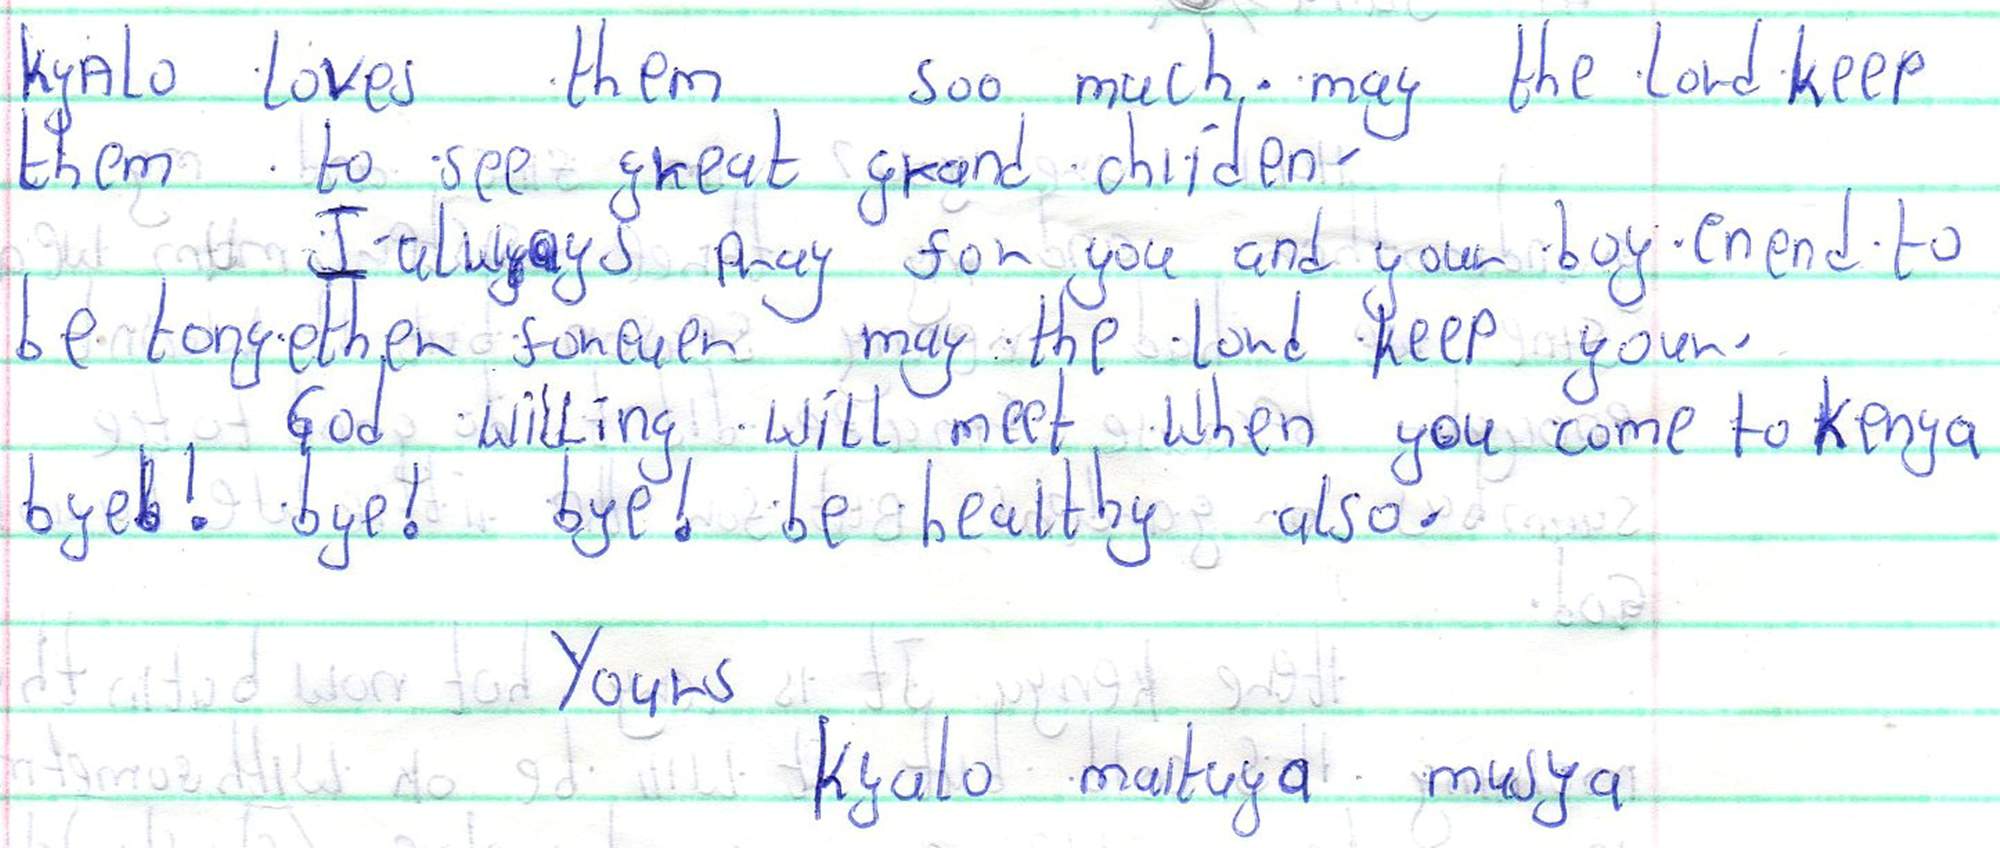 KyAlo loves them soo much. may the lord keep
them to see great grand chijden.
I always pray for you and your boy enend to
be tongether forever may the lord keep your.
God willing will meet when you come to Kenya
byeb! bye! bye! be healthy also.
Yours
Kyalo maituya musya